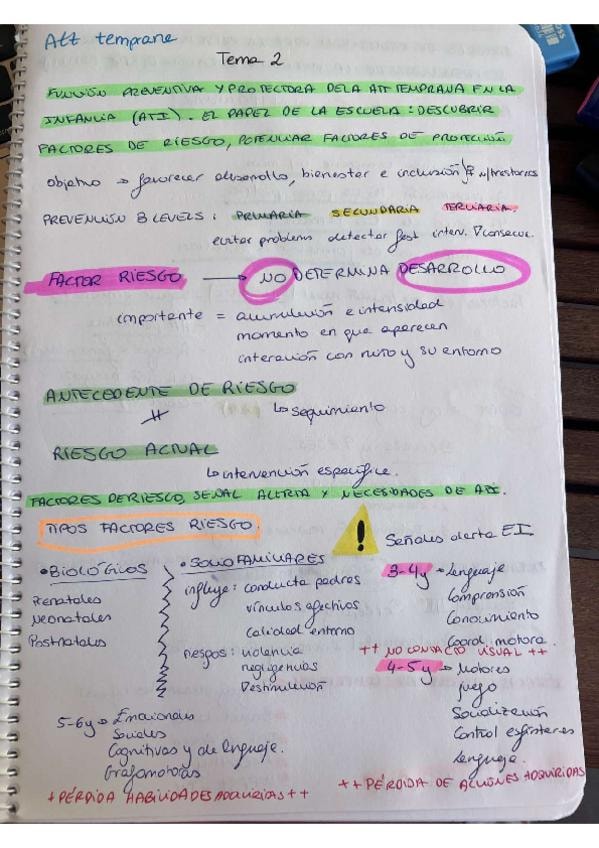 Att temprana
Tema 2
FUNCIÓN PREVENTIVA Y PROTECTORA DE LA ATT TEMPRANA EN LA
INFANCIA (ATI). EL PAPEL DE LA ESCUELA: DESCUBRIR
FACTORES DE RIESGO, POTENCIAR FACTORES DE PROTECCIÓN
objetivo → favorecer desarrollo, bienestar e inclusión
PREVENCIÓN 3 LEVELS: PRIMARIA SECUNDARIA TERCIARIA
evitar problems detectar interv. consecu.
FACTOR RIESGO → NO DETERMINA DESARROLLO
importante = acumulación e intensidad
momento en que aparecen
interación con niño y su entorno
ANTECEDENTE DE RIESGO
≠ ↳ seguimiento
RIESGO ACTUAL
↳ intervención específica.
FACTORES DE RIESGO, SEÑAL ALERTA Y NECESIDADES DE ATI.
TIPOS FACTORES RIESGO.
• BIOLÓGICOS
Prenatales
Neonatales
Postnatales
• SOCIOFAMILIARES
influye: conducta padres
vínculos afectivos
calidad entorno
riesgos: violencia
negligencias
Desnutrición
Señales alerta EI
3-4y → Lenguaje
Comprensión
Conocimiento
Coord. motora
++ NO CONTACTO VISUAL ++
4-5y → Motores
juego
Socialización
Control esfínteres
Lenguaje.
++ PÉRDIDA DE ACCIONES ADQUIRIDAS
5-6y → Emocionales
Sociales
Cognitivas y de lenguaje.
Grafomotoras
+ PÉRDIDA HABILIDADES ADQUIRIDAS ++